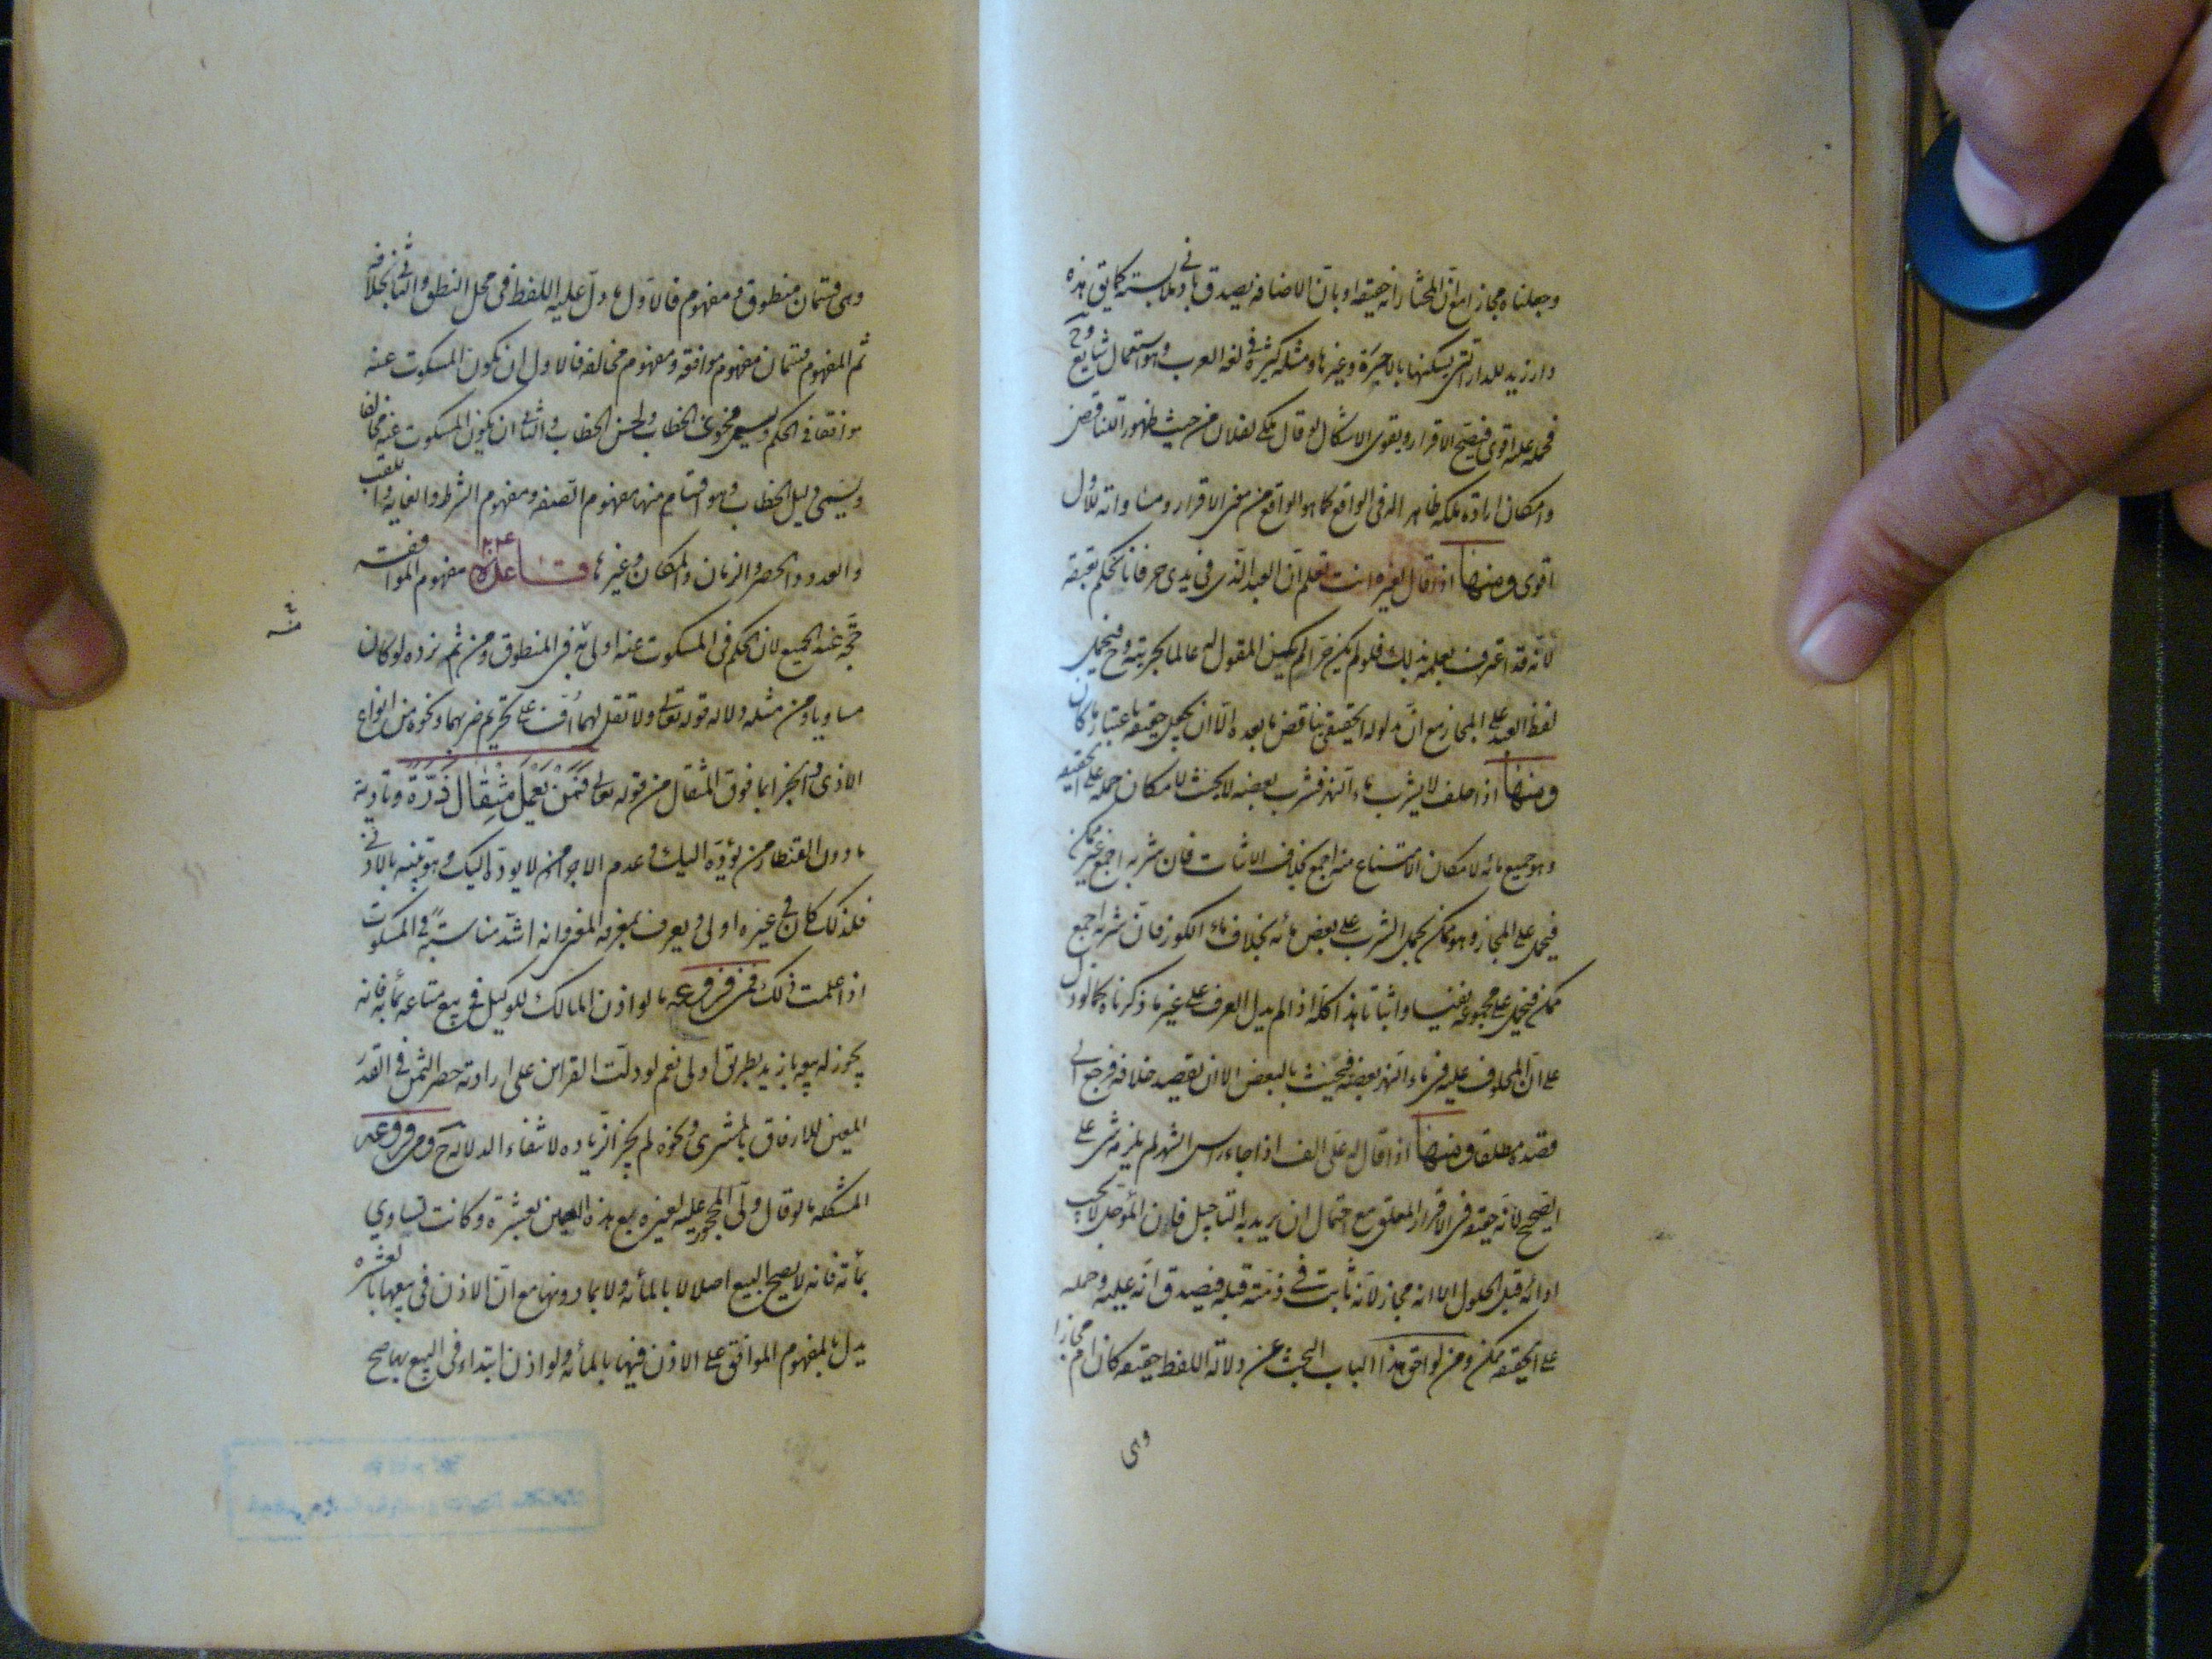 وجعلناه مجازا مع ان المختار انه حقيقة او بان الاضافة يصدق بادنى ملابسة كما يق هذه
دار زيد للدار التي يسكنها بالاجرة وغيرها ومثله كثير في لغة العرب وهو استعمال شايع وح
فحمله عليه اقوى فيصح الاقرار ويقوى الاشكال لو قال ملكي لفلان من حيث ظهور التناقض
وامكان ارادة ملكه ظاهرا لا في الواقع كما هو الواقع من معنى الاقرار ومساواته للاول
اقوى ومنها اذا قال لغيره انت تعلم ان العبد الذي في يدي حر فانا نحكم بعتقه
لانه قد اعترف بعلمه بذلك فلو لم يكن حرا لم يكن المقول له عالما بحريته وح فيحمل
لفظ العبد على المجاز مع ان مدلوله الحقيقي يناقض ما بعده الا ان يجعل حقيقة باعتبار ما كان
ومنها اذا حلف لا يشرب ماء النهر فشرب بعضه لا يحنث لامكان حمله على الحقيقة
وهو جميع مائه لامكان الامتناع منه اجمع بخلاف الاثبات فان شربه اجمع غير ممكن
فيحمل على المجاز وهو ممكن بحمل الشرب على بعض مائه بخلاف ماء الكوز فان شربه اجمع
ممكن فيحمل على مجموعه نفيا واثباتا هذا كله اذا لم يدل العرف على غير ما ذكرناه كما لو دل
على ان المحلوف عليه من ماء النهر بعضه فيحنث بالبعض الا ان يقصد خلافه فرجع الى
قصده مطلقا ومنها اذا قال له على الف اذا جاء راس الشهر لم يلزمه شئ على
الصحيح لانه حقيقة في الاقرار المعلق مع احتمال ان يريد به التاجيل فان المؤجل لا يجب
ادائه قبل الحلول الا انه مجاز لانه ثابت في ذمته قبله فيصدق انه عليه وحمله
على الحقيقة ممكن ومن لواحق هذا الباب البحث عن دلالة اللفظ حقيقة كان ام مجازا
وهى
وهى قسمان منطوق ومفهوم فالاول ما دل عليه اللفظ في محل النطق والثاني بخلافه
ثم المفهوم قسمان مفهوم موافقة ومفهوم مخالفة فالاول ان يكون المسكوت عنه
موافقا في الحكم ويسمى فحوى الخطاب ولحن الخطاب والثاني ان يكون المسكوت عنه مخالفا
ويسمى دليل الخطاب وهو اقسام منها مفهوم الصفة ومفهوم الشرط والغاية واللقب
والعدد والحصر والزمان والمكان وغيرها قاعدة مفهوم الموافقة
حجة عند الجميع لان الحكم في المسكوت عنه اولى منه في المنطوق ومن ثم نزده لو كان
منه
مساويا ومن مثله دلالة قوله تعالى ولا تقل لهما اف على تحريم ضربهما ونحوه من انواع
الاذى والجزا بما فوق المثقال من قوله تعالى فَمَنْ يَعْمَلْ مِثْقَالَ ذَرَّةٍ وتادية
ما دون القنطار من يؤده اليك وعدم الاخر من لا يوده اليك وهو تنبيه بالادنى
فلذلك كان في غيره اولى ويعرف بمعرفة المعنى وانه اشد مناسبة في المسكوت
اذا علمت ذلك فمن فروعه ما لو اذن المالك للوكيل في بيع متاعه بمائة فانه
يجوز له بيعه بازيد بطريق اولى نعم لو دلت القراين على ارادته حصر الثمن في القدر
المعين للارفاق بالمشتري ونحوه لم يجز الزيادة لانتفاء الدلالة ح ومن فروعه
المشكلة ما لو قال ولي المحجور عليه لغيره بع هذه العين بعشرة وكانت تساوي
بمائة فانه لا يصح البيع اصلا لا بالمائة ولا بما دونها مع ان الاذن في بيعها بالعشرة
يدل بالمفهوم الموافق على الاذن فيها بالمائة ولو اذن ابتداء في البيع بها صح